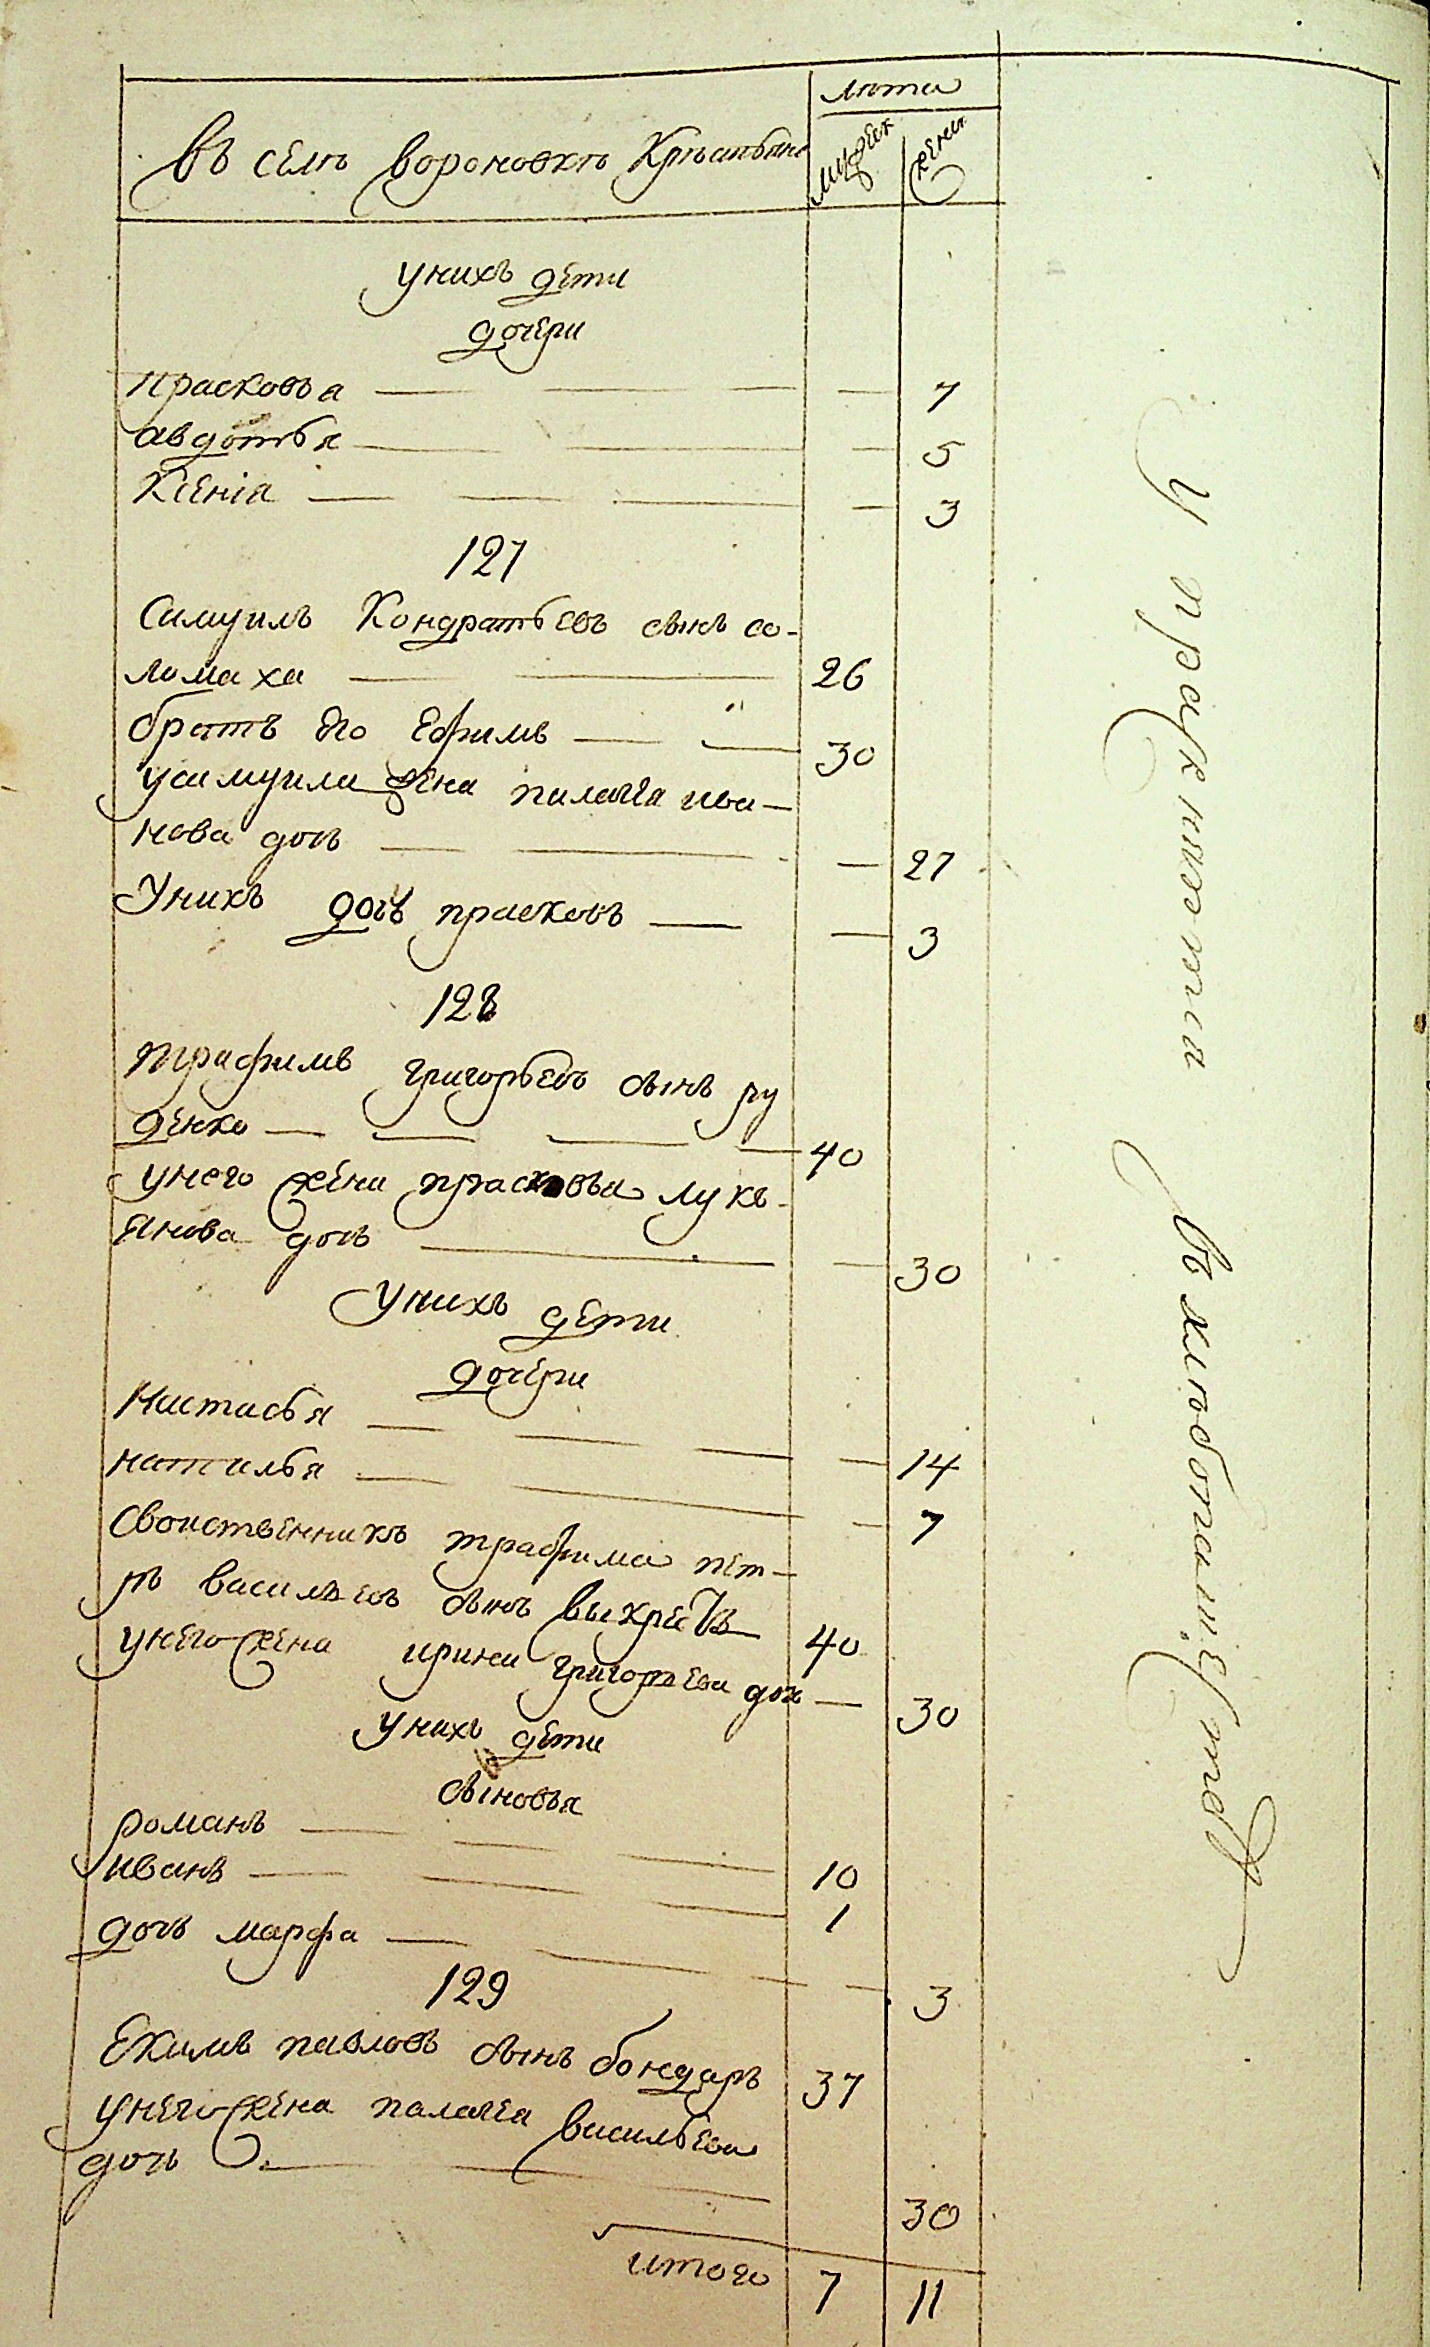 въ селѣ вороновкѣ Крѣстьяне
лѣта
мужеск
женск
у нихъ дети
дочери
прасковъа 7
авдотья 5
Ксенiя 3
127
Самуилъ Кондратьевъ сынъ со-
ломаха 26
братъ его Ефимъ 30
у самуила жена палагеа ива-
нова дочь 27
У нихъ дочь прасковъ 3
128
трафимъ григорьевъ сынъ ру
денко 40
у него жена прасковъа лукъ-
янова дочь 30
У нихъ дети
дочери
Настасья 14
наталья 7
свойственникъ трафима пет-
ръ васильевъ сынъ выкрестъ 40
у него жена ирина григорьева доч 30
У нихъ дети
сыновъя
романъ 10
иванъ 1
дочь марфа 3
129
Екимъ павловъ сынъ бондаръ 37
У него жена палагеа васильева
дочь 30
итого 7 11